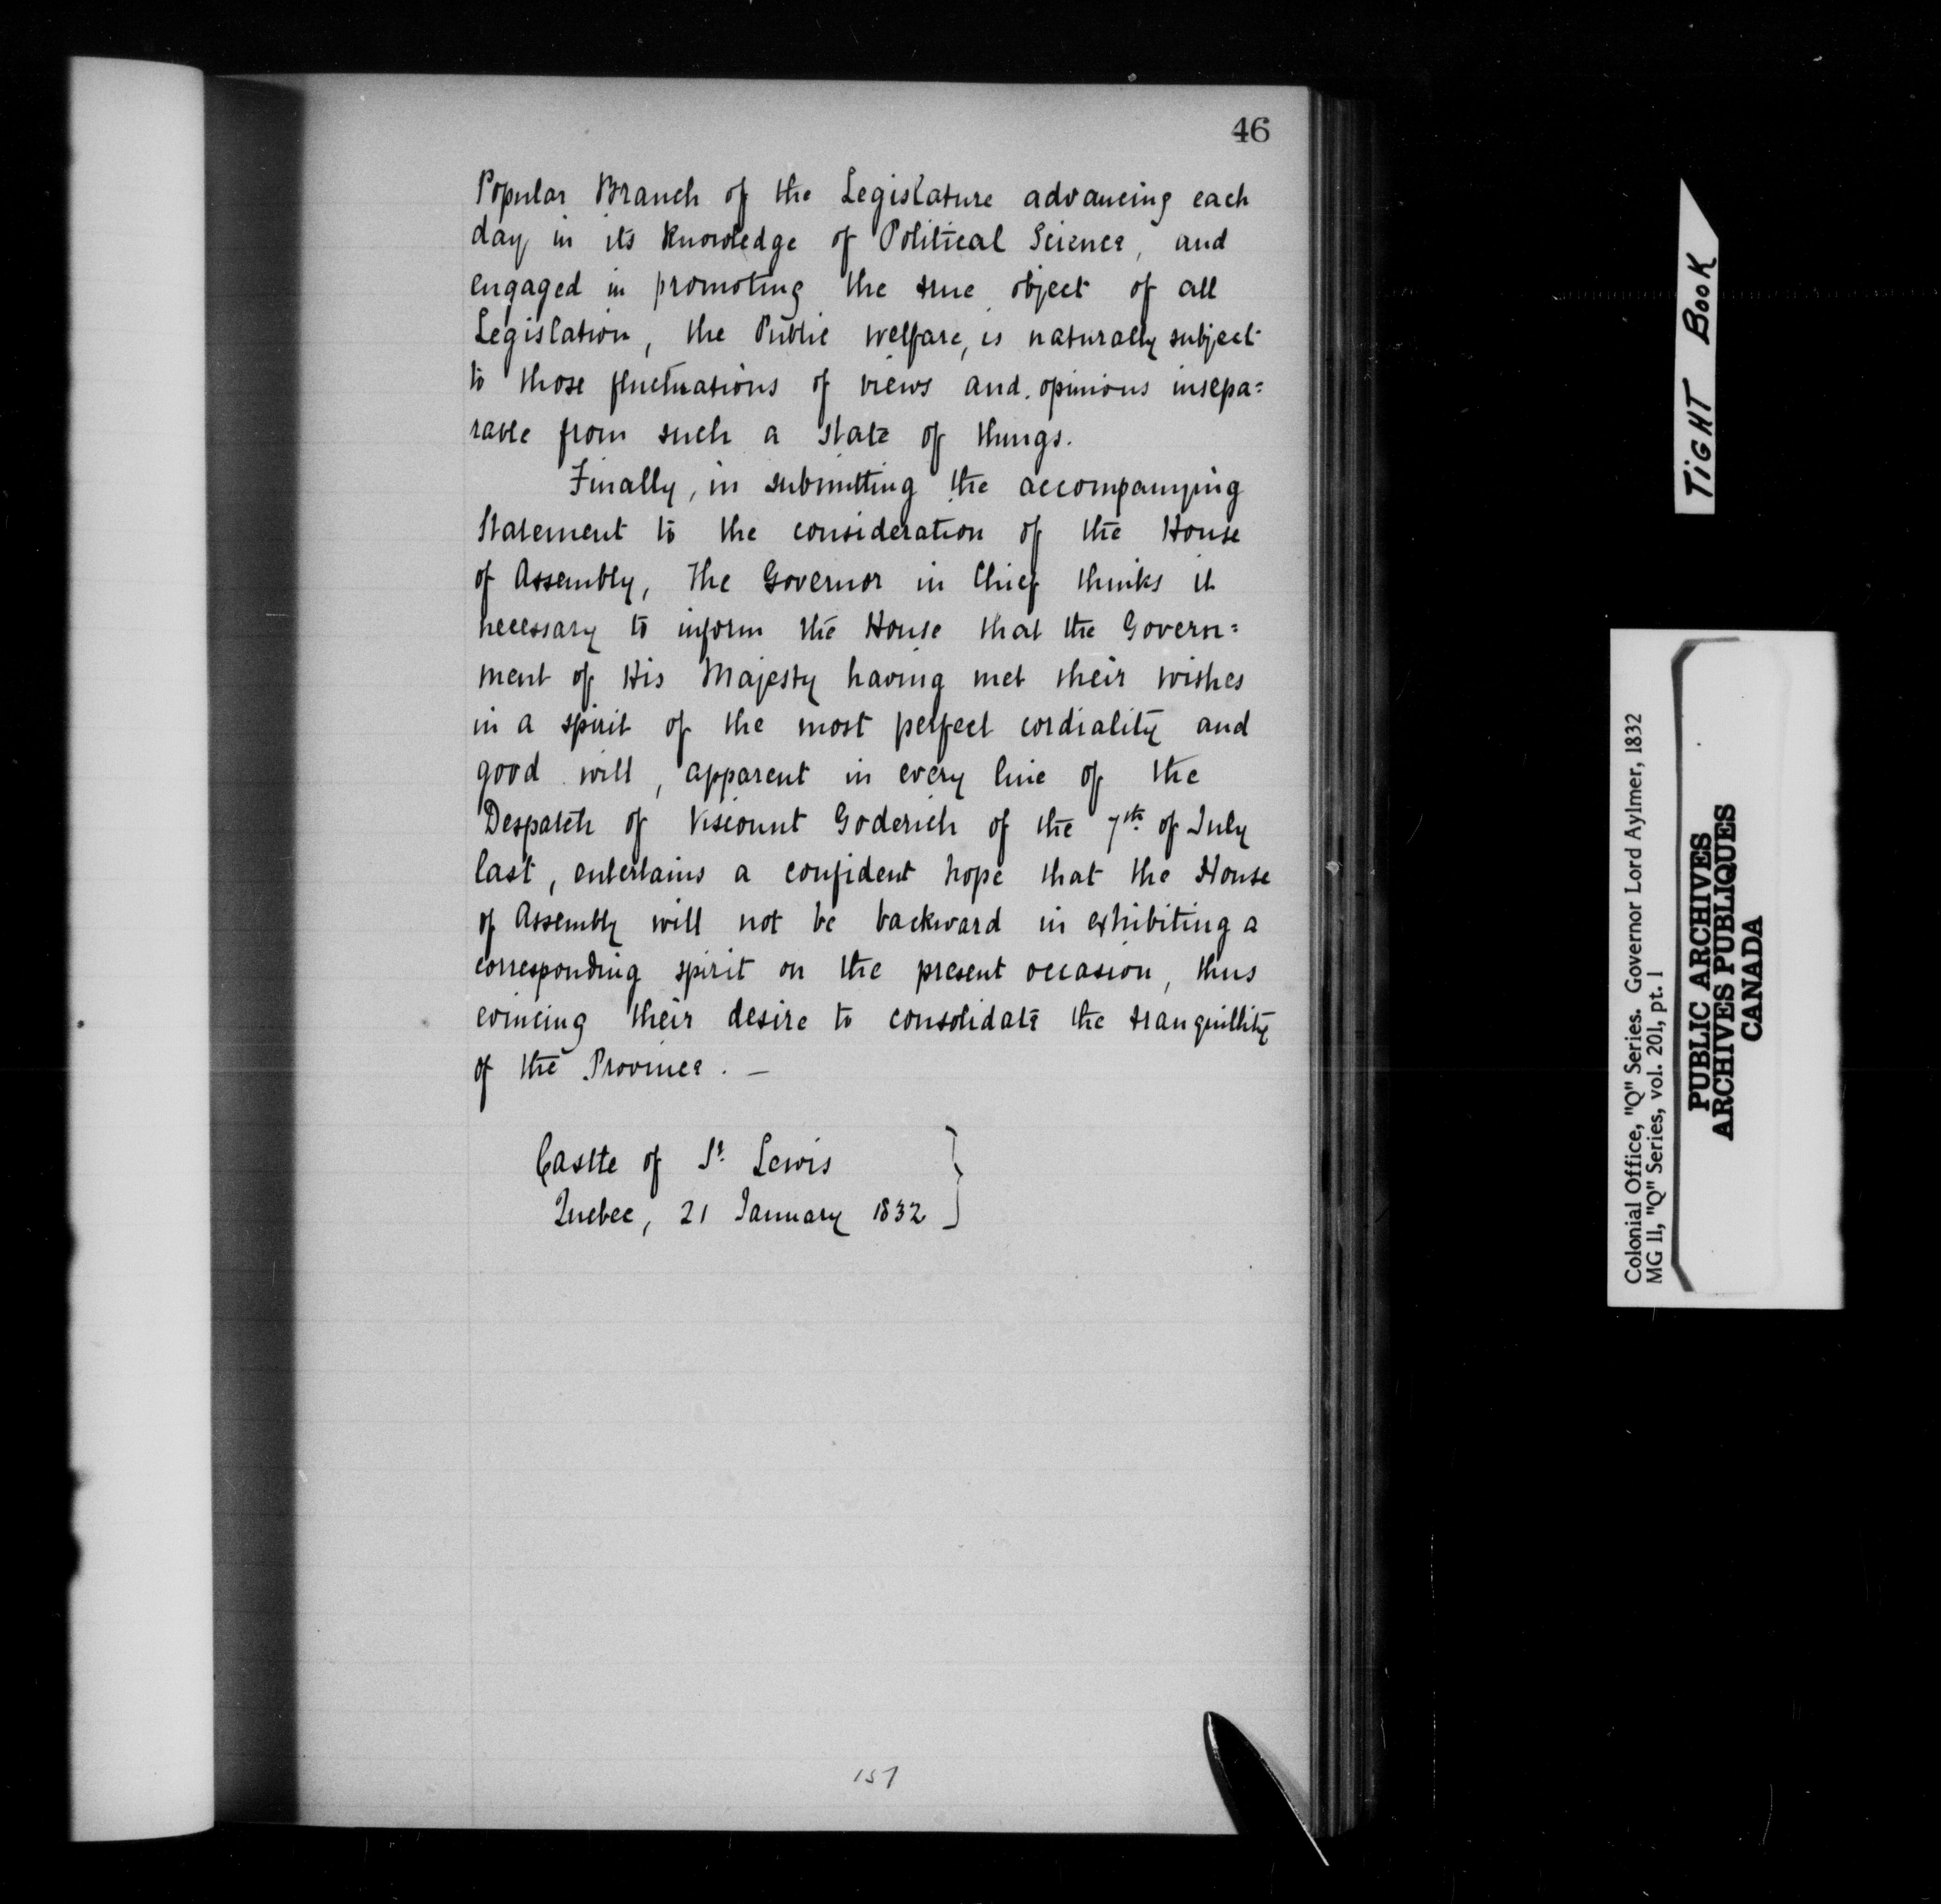 46
Popular Branch of the Legislature advancing each
day in its knowledge of Political Science, and
engaged in promoting the true object of all
Legislation, the Public welfare, is naturally subject
to those fluctuations of views and opinions insepa=
rable from such a state of things.
Finally, in submitting the accompanying
Statement to the consideration of the House
of Assembly, The Governor in Chief thinks it
necessary to inform the House that the Govern=
ment of His Majesty having met their wishes
in a spirit of the most perfect cordiality and
good will, apparent in every line of the
Despatch of Viscount Goderich of the 7th of July
last, entertains a confident hope that the House
of Assembly will not be backward in exhibiting a
corresponding spirit on the present occasion, thus
evincing their desire to consolidate the tranquillity
of the Province. —
Castle of St. Lewis
Quebec, 21 January 1832 }
157
TIGHT BOOK
Colonial Office, "Q" Series. Governor Lord Aylmer, 1832
MG 11, "Q" Series, vol. 201, pt. 1
PUBLIC ARCHIVES
ARCHIVES PUBLIQUES
CANADA